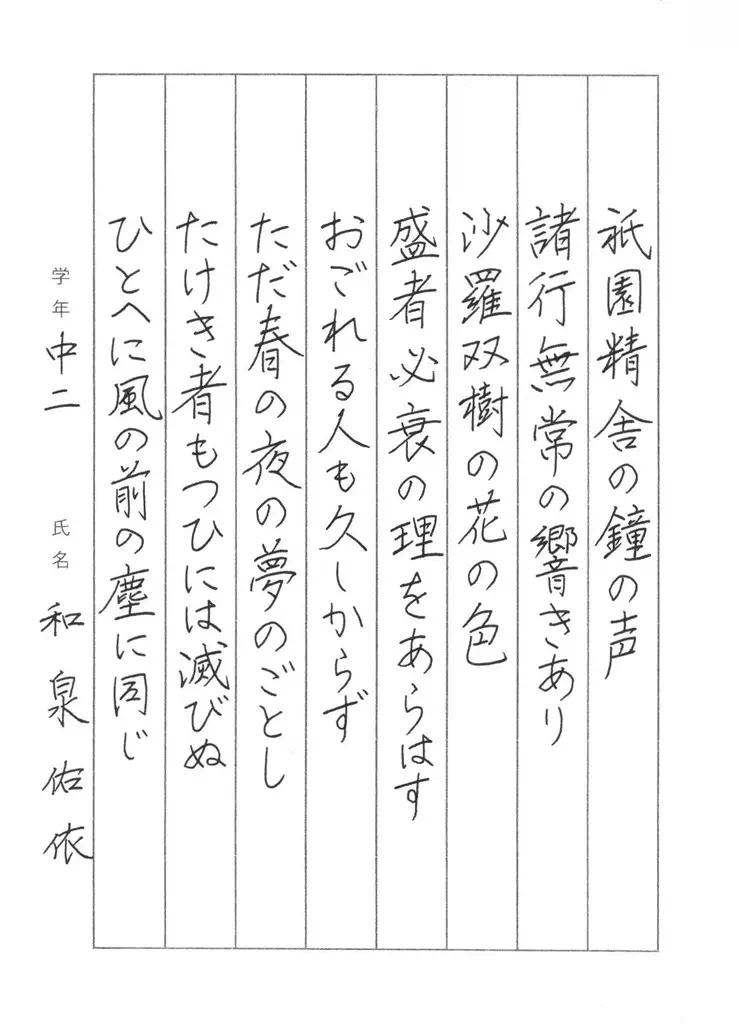 祇園精舎の鐘の声
諸行無常の響きあり
沙羅双樹の花の色
盛者必衰の理をあらはす
おごれる人も久しからず
ただ春の夜の夢のごとし
たけき者もつひには滅びぬ
ひとへに風の前の塵に同じ
学年 中二 氏名 和泉佑依